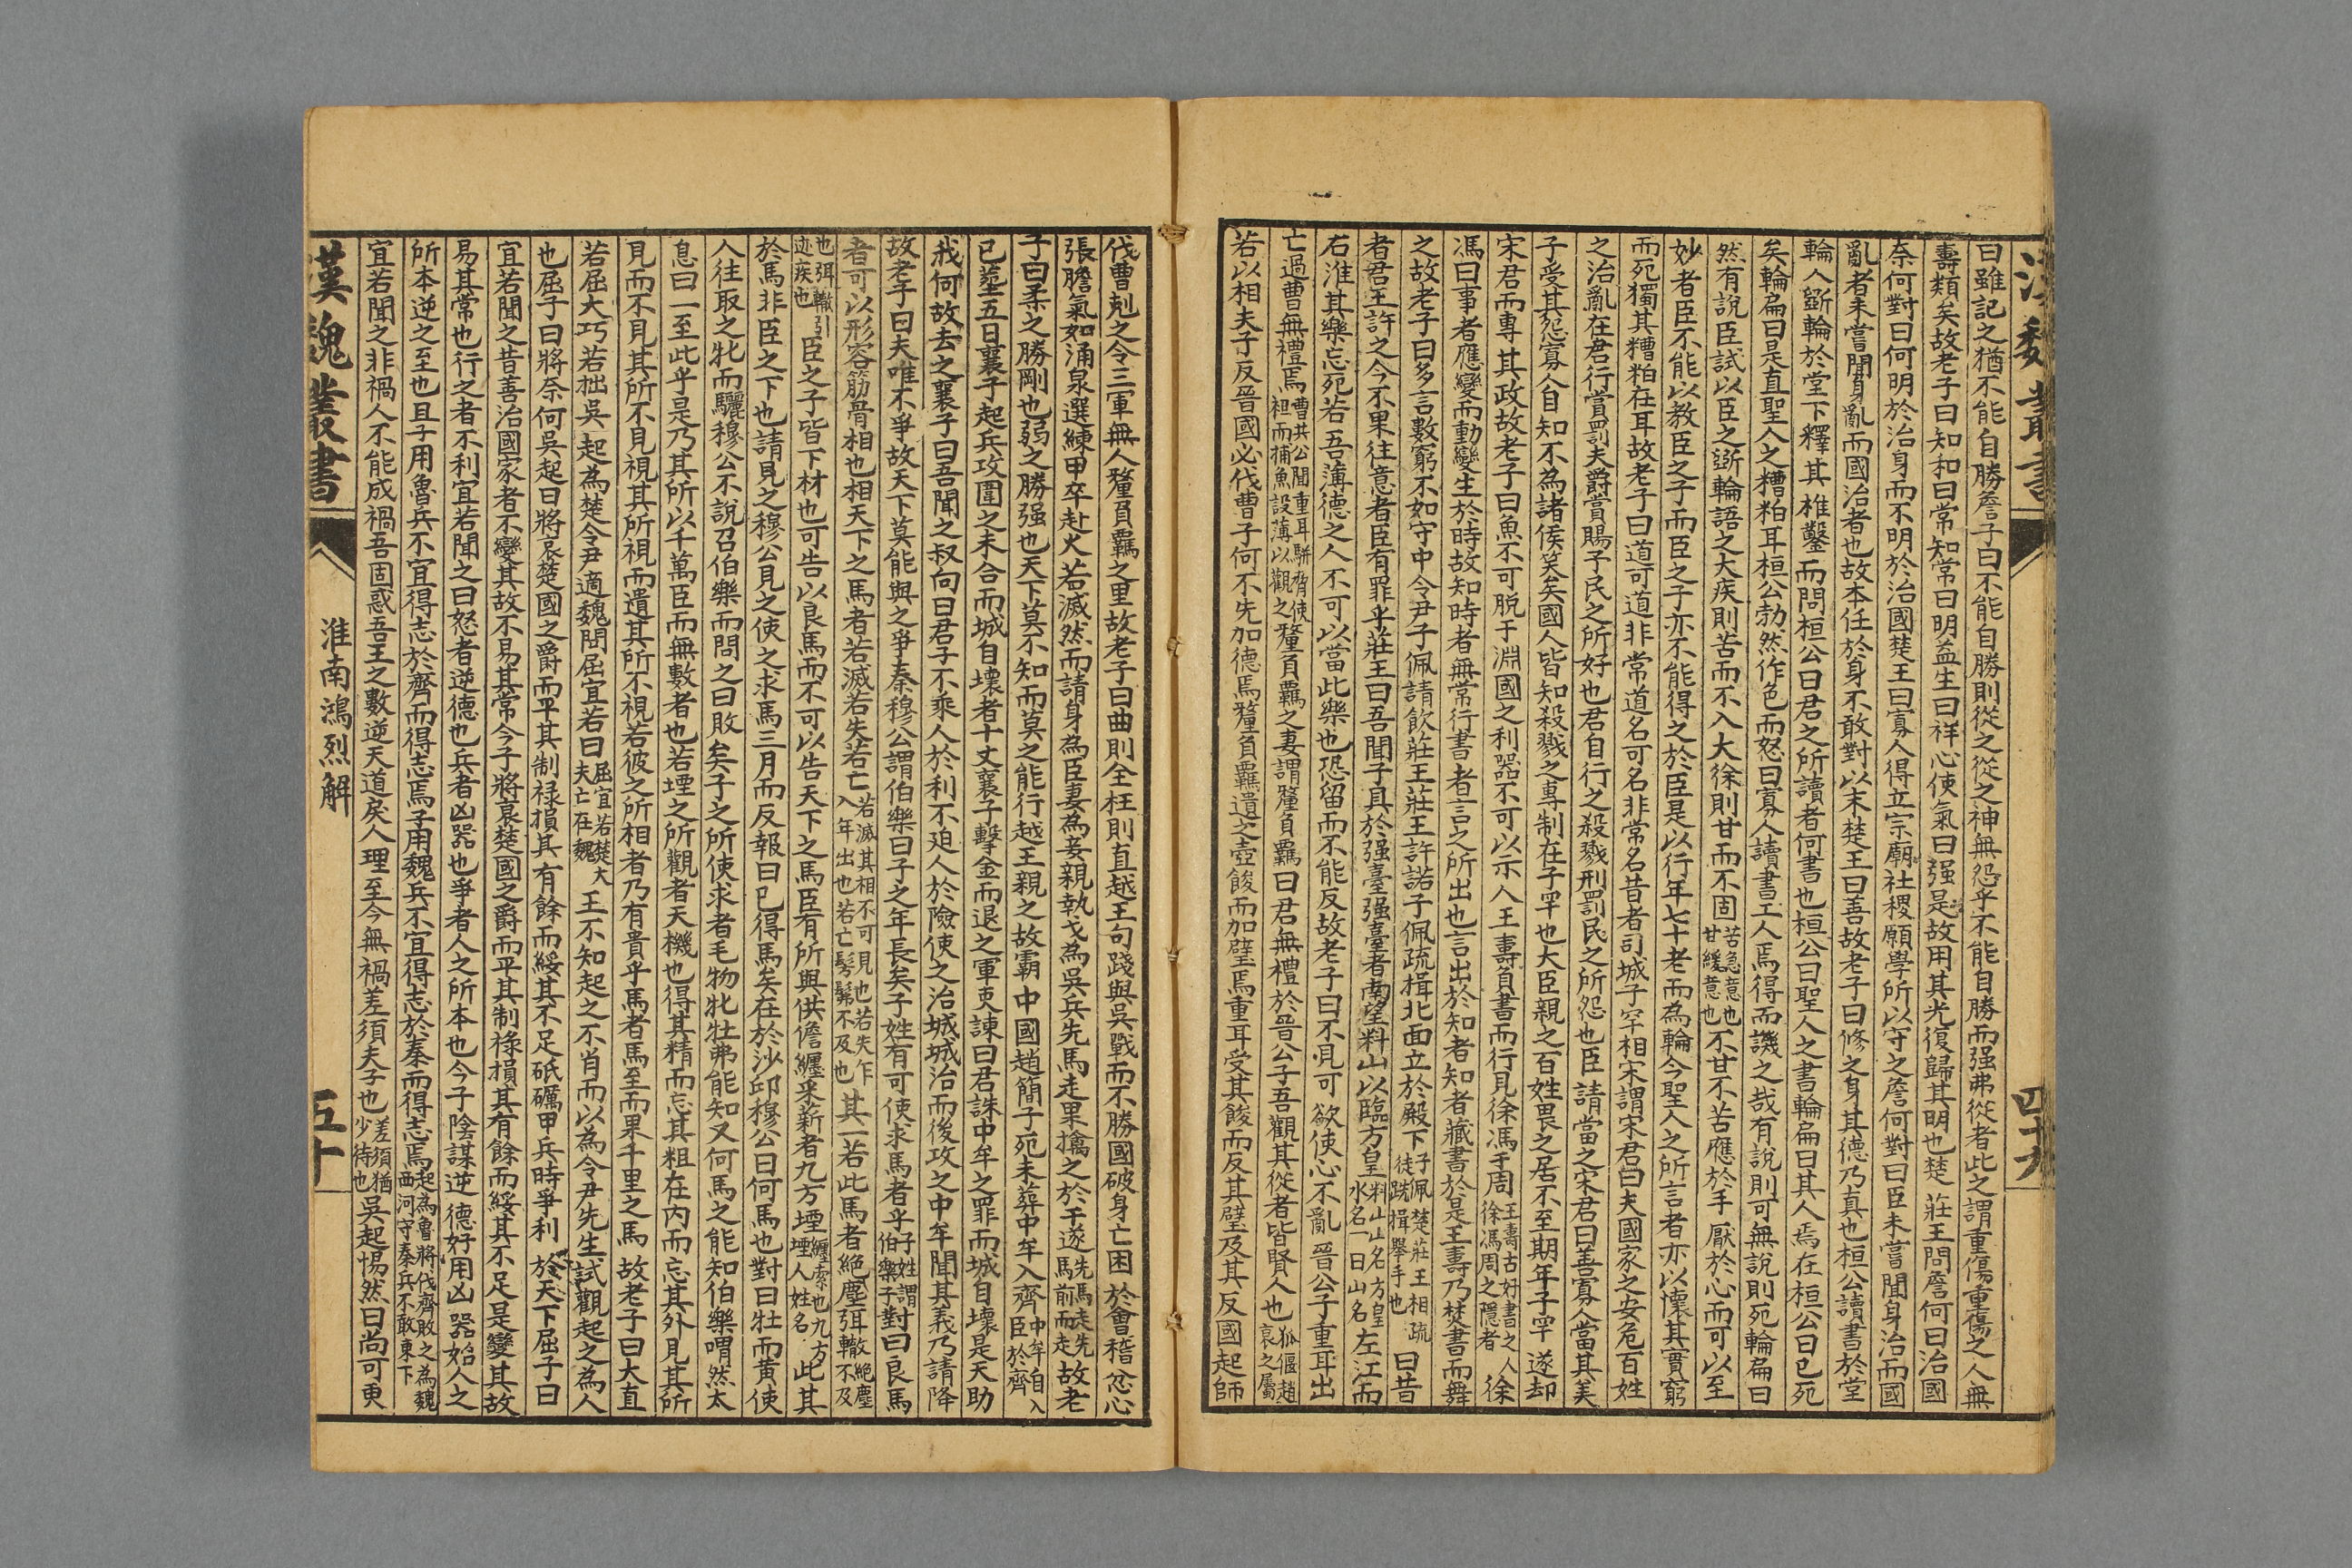 漢魏叢書
四十九
曰雖記之猶不能自勝詹子曰不能自勝則從之從之神無怨乎不能自勝而强弗從者此之謂重傷重傷之人無
壽類矣故老子曰知和曰常知常曰明益生曰祥心使氣曰强是故用其光復歸其明也楚莊王問詹何曰治國
奈何對曰何明於治身而不明於治國楚王曰寡人得立宗廟社稷願學所以守之詹何對曰臣未嘗聞身治而國
亂者未嘗聞身亂而國治者也故本任於身不敢對以末楚王曰善故老子曰修之身其德乃真也桓公讀書於堂
輪人斵輪於堂下釋其椎鑿而問桓公曰君之所讀者何書也桓公曰聖人之書輪扁曰其人焉在桓公曰已死
矣輪扁曰是直聖人之糟粕耳桓公勃然作色而怒曰寡人讀書工人焉得而譏之哉有說則可無說則死輪扁曰
然有說臣試以臣之斵輪語之大疾則苦而不入大徐則甘而不固苦急意也甘緩意也不甘不苦應於手厭於心而可以至
妙者臣不能以教臣之子而臣之子亦不能得之於臣是以行年七十老而為輪今聖人之所言者亦以懷其實窮
而死獨其糟粕在耳故老子曰道可道非常道名可名非常名昔者司城子罕相宋謂宋君曰夫國家之安危百姓
之治亂在君行賞罰夫爵賞賜予民之所好也君自行之殺戮刑罰民之所怨也臣請當之宋君曰善寡人當其美
子受其怨寡人自知不為諸侯笑矣國人皆知殺戮之專制在子罕也大臣親之百姓畏之居不至期年子罕遂却
宋君而專其政故老子曰魚不可脫于淵國之利器不可以示人王壽負書而行見徐馮于周王壽古好書之人徐馮周之隱者徐
馮曰事者應變而動變生於時故知時者無常行書者言之所出也言出於知者知者藏書於是王壽乃焚書而舞
之故老子曰多言數窮不如守中令尹子佩請飲莊王莊王許諾子佩疏揖北面立於殿下子佩楚莊王相疏徒跣揖舉手也曰昔
者君王許之今不果往意者臣有罪乎莊王曰吾聞子具於强臺强臺者南望料山以臨方皇料山山名方皇水名一曰山名左江而
右淮其樂忘死若吾薄德之人不可以當此樂也恐留而不能反故老子曰不見可欲使心不亂晉公子重耳出
亡過曹無禮焉曹共公聞重耳駢脅使袒而捕魚設薄以觀之釐負羈之妻謂釐負羈曰君無禮於晉公子吾觀其從者皆賢人也狐偃趙衰之屬
若以相夫子反晉國必伐曹子何不先加德焉釐負羈遺之壺餕而加璧焉重耳受其餕而反其璧及其反國起師
伐曹剋之令三軍無入釐負羈之里故老子曰曲則全枉則直越王句踐與吳戰而不勝國破身亡困於會稽忿心
張膽氣如涌泉選練甲卒赴火若滅然而請身為臣妻為妾親執戈為吳兵先馬走果擒之於干遂先馬走先馬前而走故老
子曰柔之勝剛也弱之勝强也天下莫不知而莫之能行越王親之故霸中國趙簡子死未葬中牟入齊中牟自入臣於齊
已葬五日襄子起兵攻圍之未合而城自壞者十丈襄子擊金而退之軍吏諫曰君誅中牟之罪而城自壞是天助
我何故去之襄子曰吾聞之叔向曰君子不乘人於利不迫人於險使之治城城治而後攻之中牟聞其義乃請降
故老子曰夫唯不爭故天下莫能與之爭秦穆公謂伯樂曰子之年長矣子姓有可使求馬者乎子姓謂伯樂子對曰良馬
者可以形容筋骨相也相天下之馬者若滅若失若亡若滅其相不可見也若失乍入乍出也若亡髣髴不及也其一若此馬者絕塵弭轍絕塵不及
也弭轍引迹疾也臣之子皆下材也可告以良馬而不可以告天下之馬臣有所與供儋纏采薪者九方堙纏索也九方堙人姓名此其
於馬非臣之下也請見之穆公見之使之求馬三月而反報曰已得馬矣在於沙邱穆公曰何馬也對曰牡而黃使
人往取之牝而驪穆公不說召伯樂而問之曰敗矣子之所使求者毛物牝牡弗能知又何馬之能知伯樂喟然太
息曰一至此乎是乃其所以千萬臣而無數者也若堙之所觀者天機也得其精而忘其粗在內而忘其外見其所
見而不見其所不見視其所視而遺其所不視若彼之所相者乃有貴乎馬者馬至而果千里之馬故老子曰大直
若屈大巧若拙吳起為楚令尹適魏問屈宜若曰屈宜若楚大夫亡在魏王不知起之不肖而以為令尹先生試觀起之為人
也屈子曰將奈何吳起曰將衰楚國之爵而平其制祿損其有餘而綏其不足砥礪甲兵時爭利於天下屈子曰
宜若聞之昔善治國家者不變其故不易其常今子將衰楚國之爵而平其制祿損其有餘而綏其不足是變其故
易其常也行之者不利宜若聞之曰怒者逆德也兵者凶器也爭者人之所本也今子陰謀逆德好用凶器始人之
所本逆之至也且子用魯兵不宜得志於齊而得志焉子用魏兵不宜得志於秦而得志焉起為魯將伐齊敗之為魏西河守秦兵不敢東下
宜若聞之非禍人不能成禍吾固惑吾王之數逆天道戾人理至今無禍差須夫子也差須猶少待也吳起惕然曰尚可更
漢魏叢書
淮南鴻烈解
五十